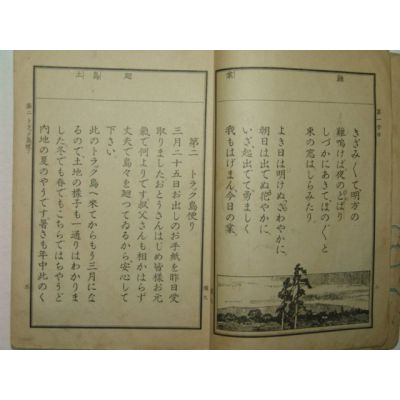 きざみくて明方の
鷄鳴けば夜のとばり
しづかにあきてほのぐと
東の窓はしらみたり。
よき日は明けぬ、さわやかに、
朝日は出でぬ、花やかに、
いざ、起出でて勇ましく
我もはげまん、今日の業。
第二 トラック島便り
三月二十五日お出しのお手紙を昨日受
取りました。おとうさんはじめ皆様お元
氣で何よりです。叔父さんも相かはらず
丈夫で島々を廻つてゐるから、安心して
下さい。
此のトラック島へ來てからもう三月にな
るので、土地の樣子も一通りはわかりま
した。冬でも春でもこちらではちやうど
内地の夏のやうです。暑さも年中此のく